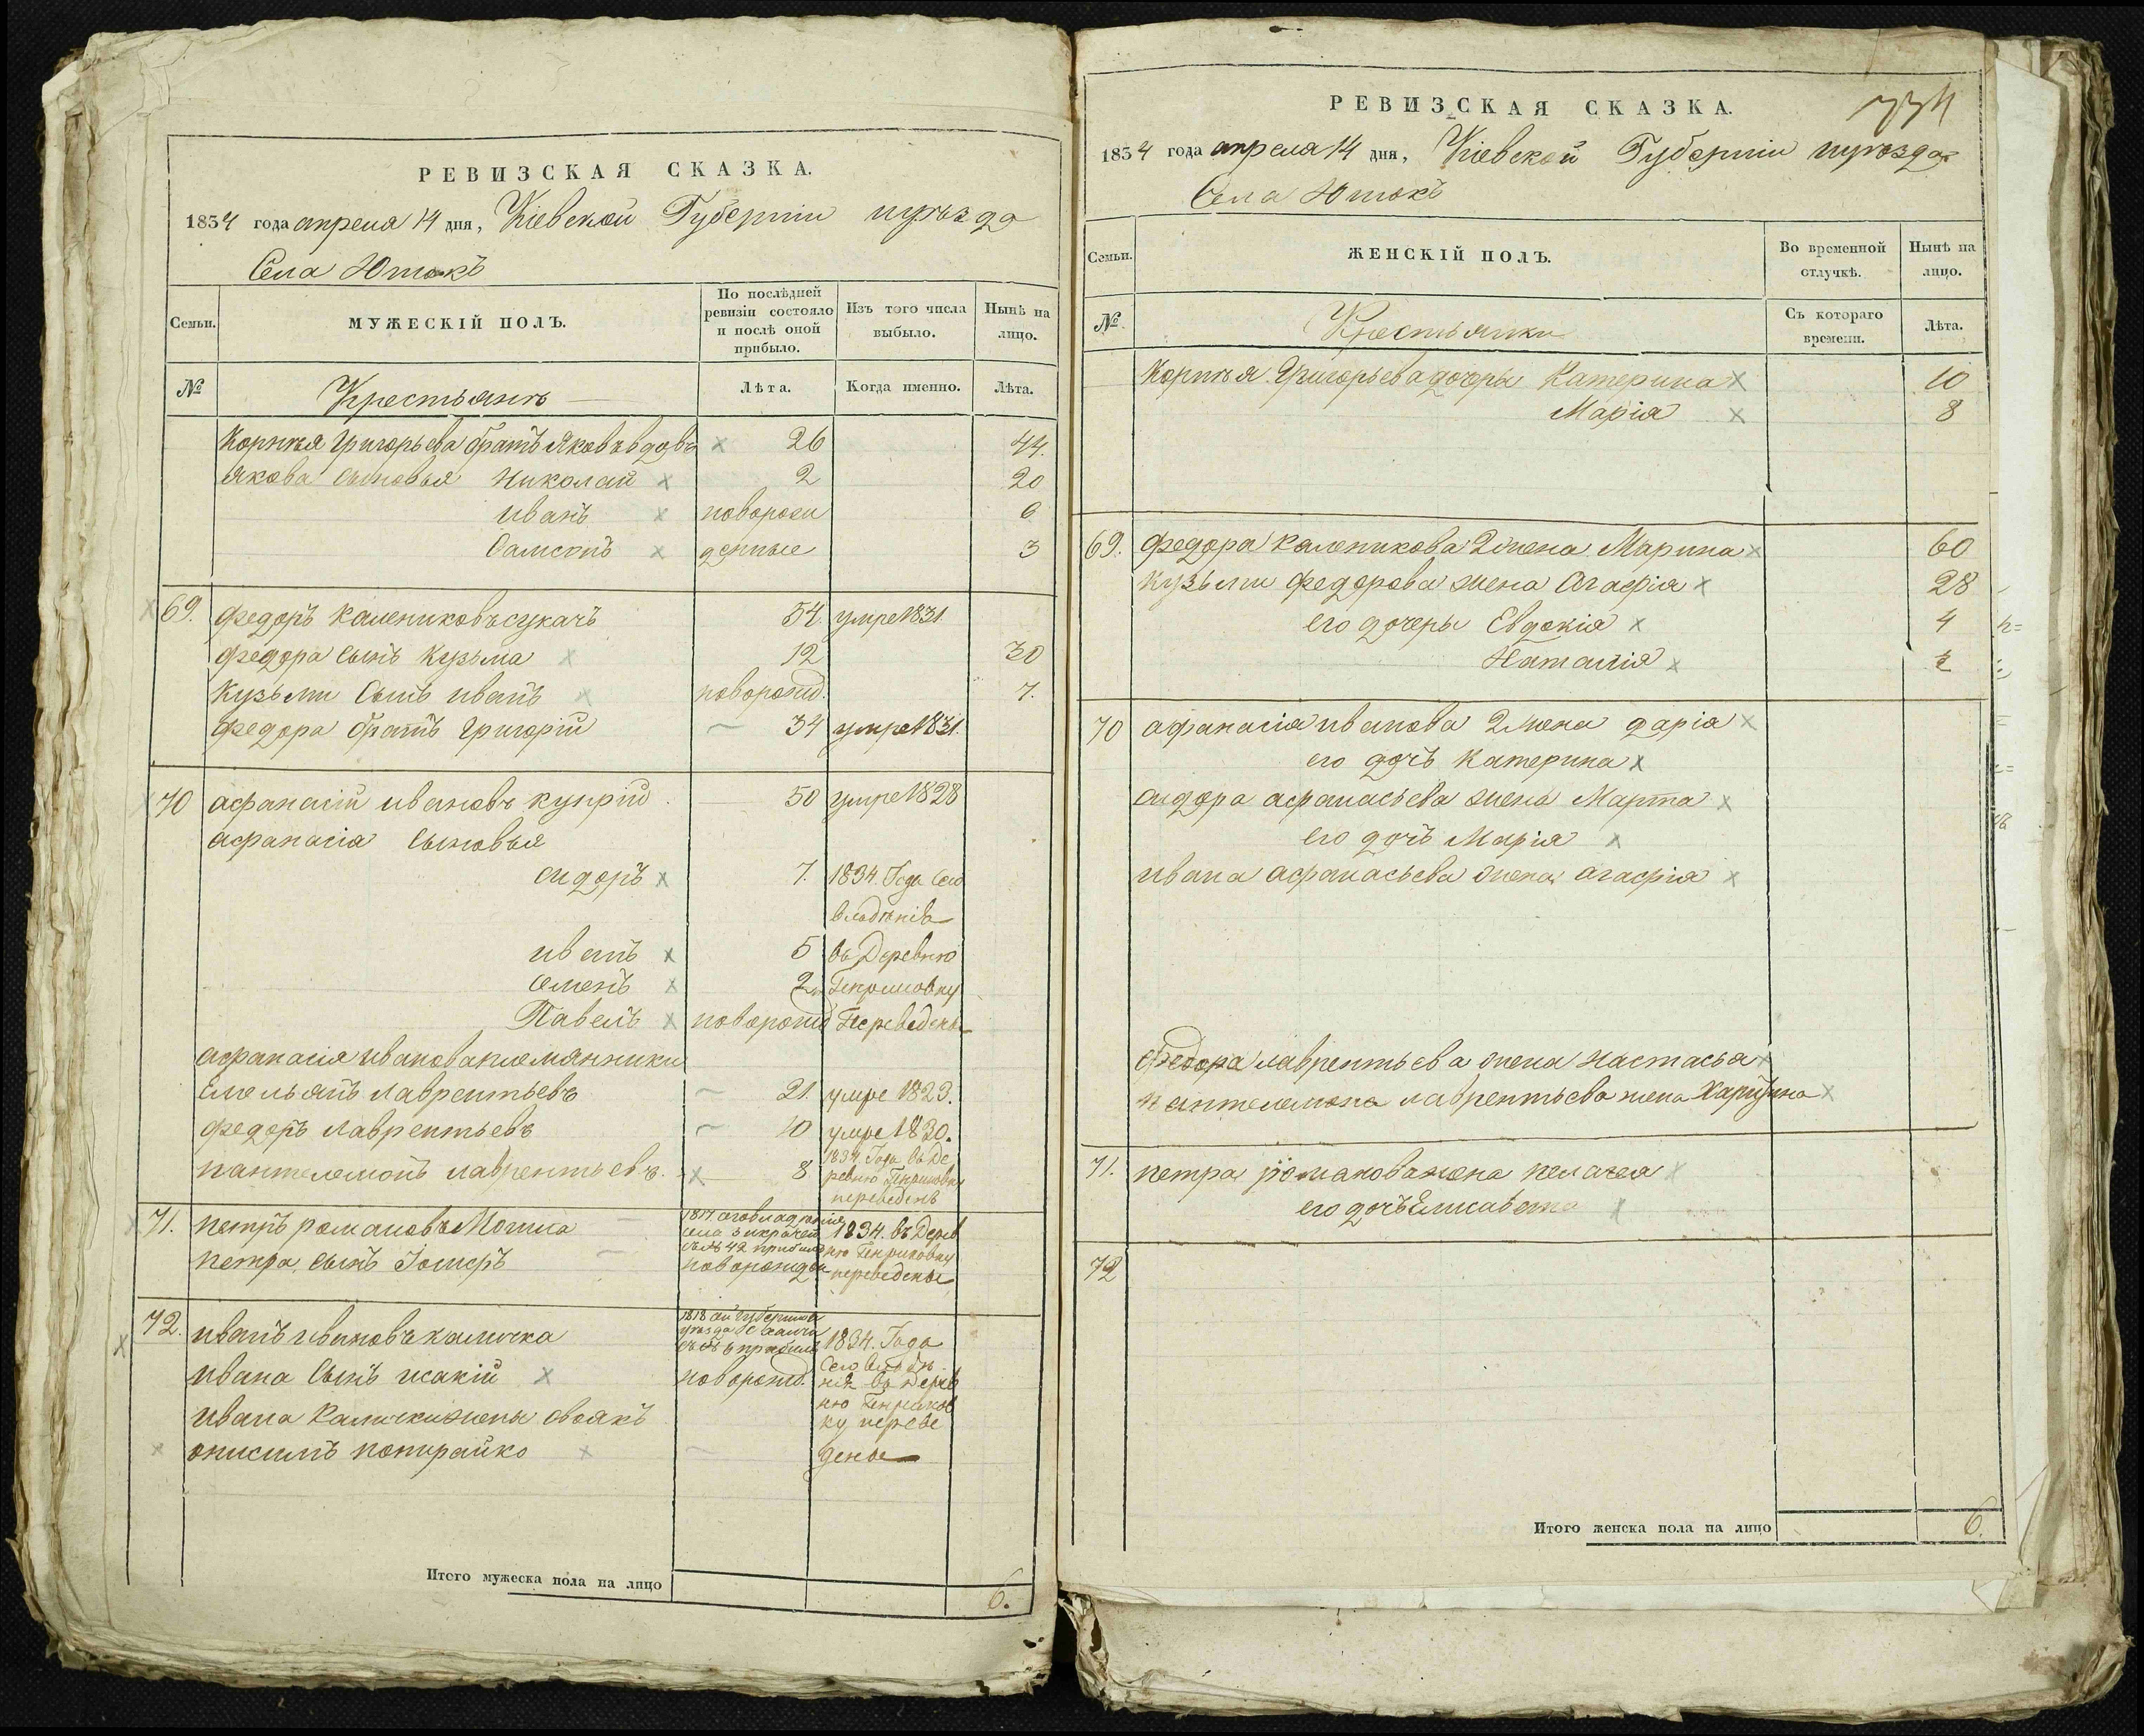 РЕВИЗСКАЯ СКАЗКА.
1834 года апреля 14 дня, Кіевской Губерніи
Села Ютокъ
Семьи.
МУЖЕСКІЙ ПОЛЪ.
По послѣдней ревизіи состояло и послѣ оной прибыло.
Изъ того числа выбыло.
Нынѣ на лицо.
№
Крестьянъ
Лѣта.
Когда именно.
Лѣта.
Корнѣя Григорьева братъ Яковъ вдовъ 26 44.
Якова сыновья Николай 2 20
иванъ новорож 6
Самсонъ денные 3
69. федоръ калениковъ сукачъ 54. умре 1831.
федора сынъ Кузьма 12 30
Кузьми сынъ иванъ новорожд. 7.
федора братъ Григорій 34 умре 1831.
70 афанасій ивановъ куприй 50 умре 1828
афанасія сыновья
сидоръ 7. 1834. Года сего
владѣнія
иванъ 5 въ Деревню
семенъ 2 Генриховку
Павелъ новорожд Переведены
афанасія иванова племянники
Емельянъ лаврентьевъ 21. умре 1823.
федоръ лаврентьевъ 10 умре 1830.
пантелемонъ лаврентьевъ. 8 1834 Года въ Де
ревню Генриховку
переведенъ
71. петръ романовъ Могила 1834. въ Дерев
ню Генриховку
петра сынъ новорожден переведены
72. иванъ ивановъ 1834. Года
ивана сынъ исакій новорожд. сего владѣ
нія въ Дерев
ню Генрихов
ивана жены своякъ ку переве
онисимъ дены
Итого мужеска пола на лицо 6.
РЕВИЗСКАЯ СКАЗКА.
1834 года апреля 14 дня, Кіевской Губерніи
Села Ютокъ
Семьи.
ЖЕНСКІЙ ПОЛЪ.
Во временной отлучкѣ.
Нынѣ на лицо.
№
Крестьянки
Съ котораго времени.
Лѣта.
Корнѣя Григорьева дочеры Катерина 10
Марія 8
69. федора каленикова 2 жена Марина 60
кузьми федорова жена Агафія 28
его дочеры Евдокія 4
Наталія 2
70 афанасія иванова 2 жена дарія
его дочъ Катерина
сидора афанасьева жена Марта
его дочъ Марія
ивана афанасьева жена агафія
Федора лаврентьева жена настасья
пантелемона лаврентьева жена Харитина
71. петра романова жена пелагея
его дочъ Елисавета
72
Итого женска пола на лицо 6.